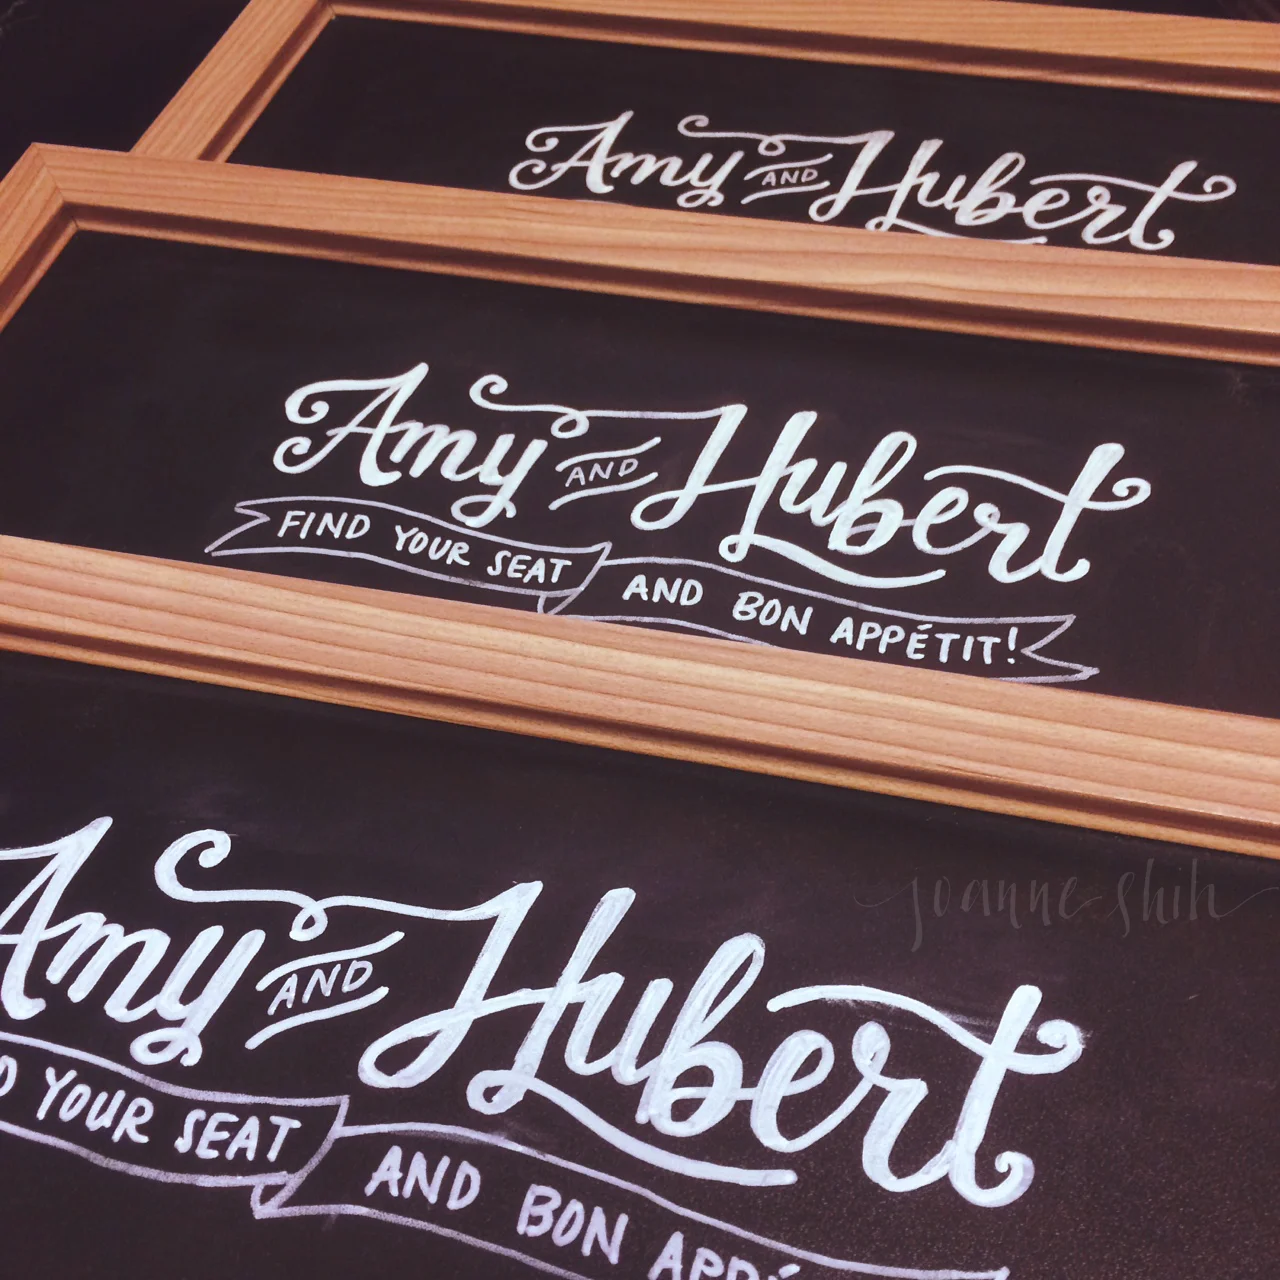 Amy AND Hubert
Amy AND Hubert
FIND YOUR SEAT AND BON APPÉTIT!
joanne shih
Amy AND Hubert
YOUR SEAT AND BON APPÉ